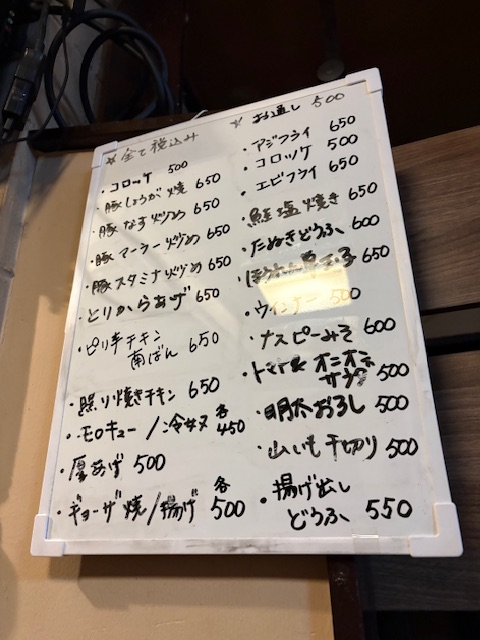 ※全て税込み
※お通し 500
・コロッケ 500
・豚しょうが焼 650
・豚なす炒め 650
・豚マーラー炒め 650
・豚スタミナ炒め 650
・とりからあげ 650
・ピリ辛チキン
南ばん 650
・照り焼きチキン 650
・モロキュー/冷奴 各450
・厚あげ 500
・ギョーザ焼/揚げ 各500
・アジフライ 650
・コロッケ 500
・エビフライ 650
・鮭塩焼き 650
・たぬきどうふ 600
・ほうれん草玉子 650
・ウインナー 500
・ナスピーみそ 600
・トマト& オニオン
サラダ 500
・明太おろし 500
・山いも千切り 500
・揚げ出し
どうふ 550